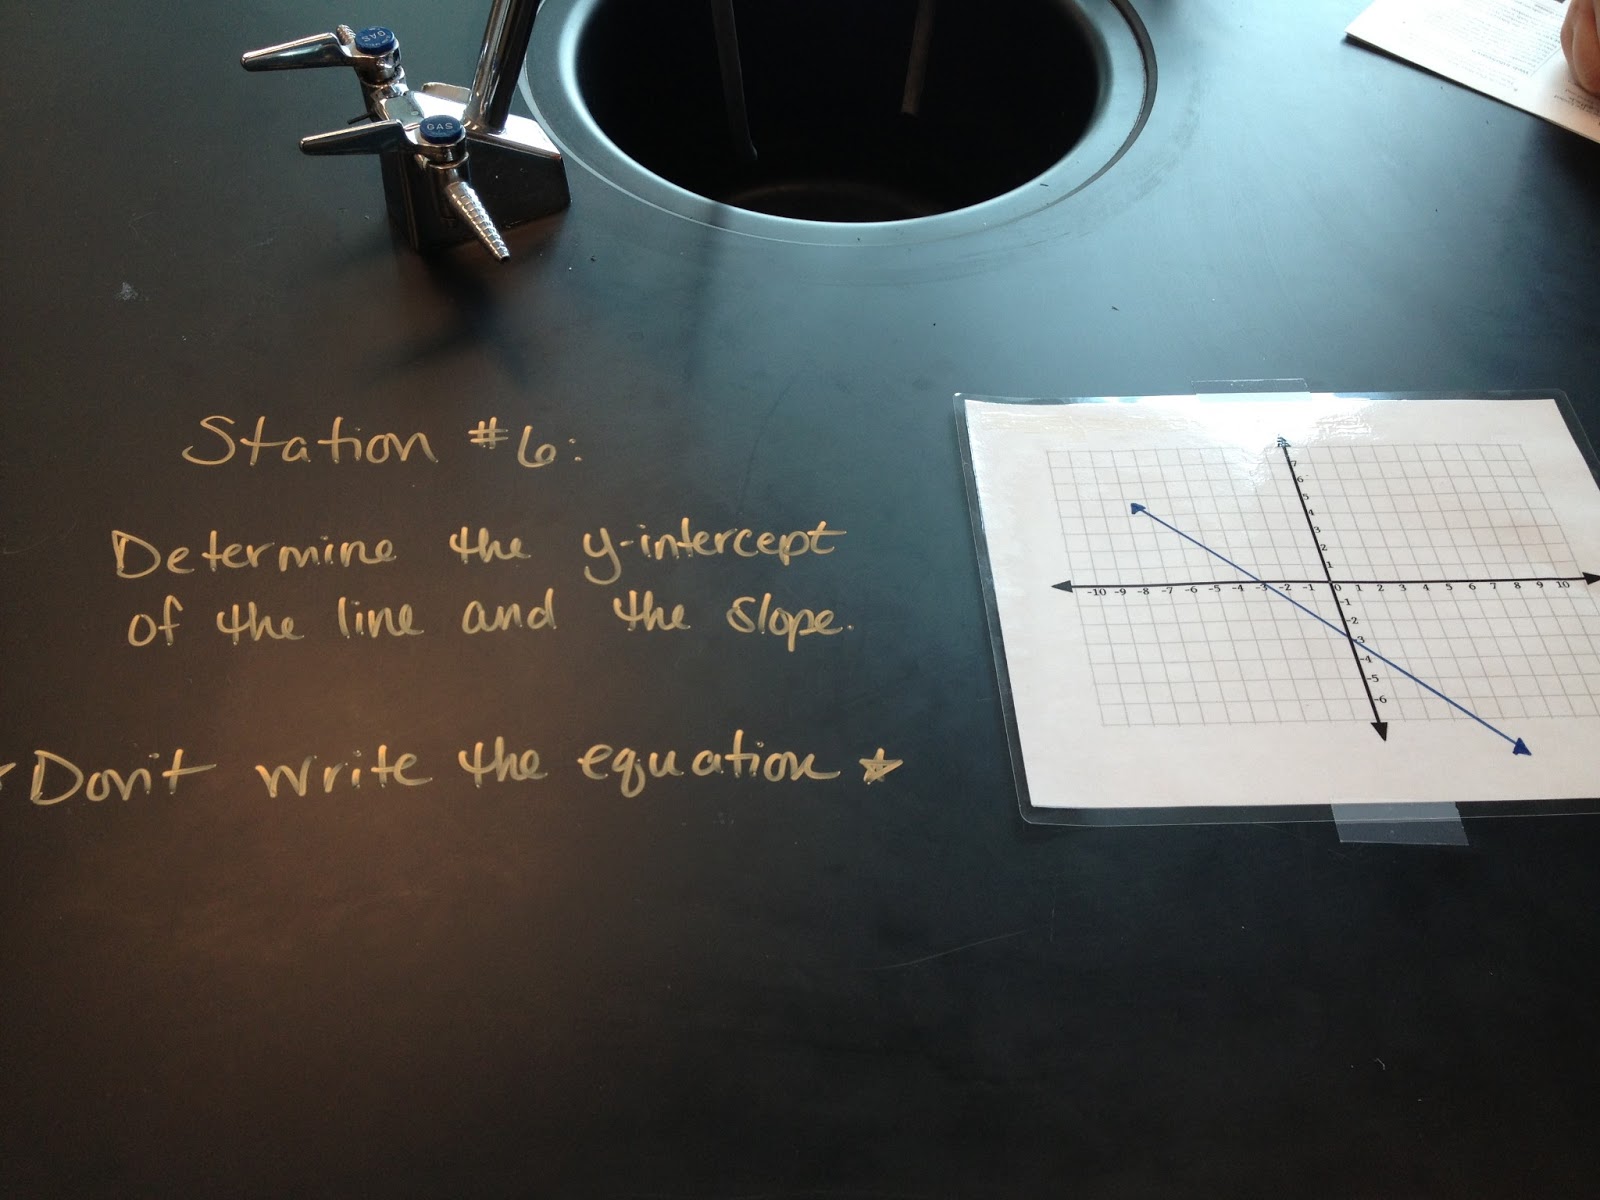 GAS
GAS
Station #6:
Determine the y-intercept
of the line and the slope.
Don't write the equation
7
6
5
4
3
2
1
-10 -9 -8 -7 -6 -5 -4 -3 -2 -1 0 1 2 3 4 5 6 7 8 9 10
-1
-2
-3
-4
-5
-6